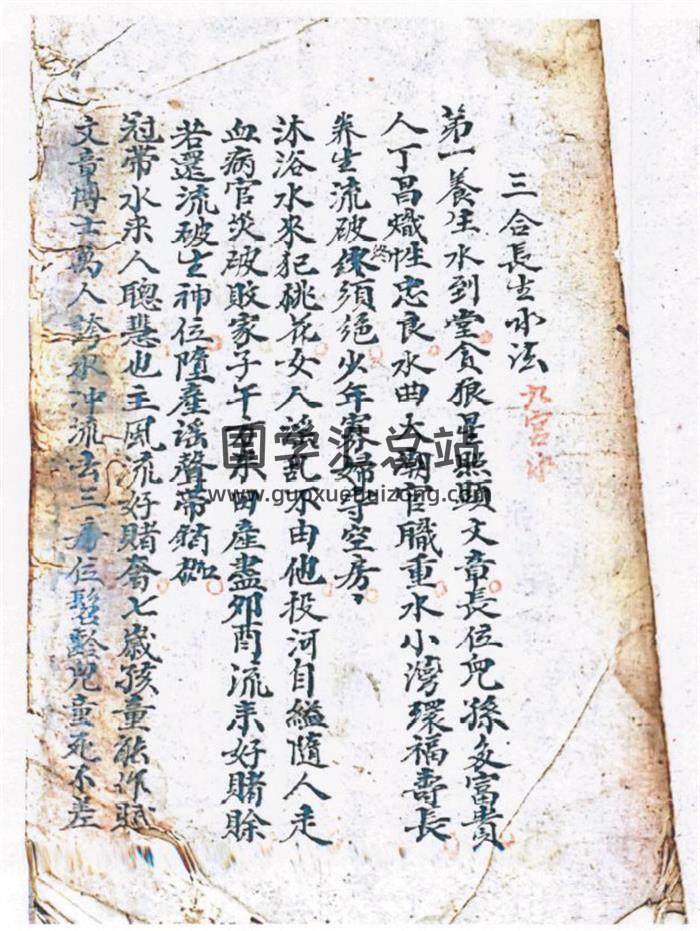 三合長生水法 九宮水
第一養生水到堂貪狼星照顯文章長位兒孫多富貴
人丁昌熾性忠良水曲大潮官職重水小灣環福壽長
养生流破終須绝少年寡婦守空房
沐浴水來犯桃花女人淫乱不由他投河自縊隨人走
血病官災破敗家子午來田産盡邜酉流来好賭賒
若還流破生神位墮産谣聲帶鎖枷
冠带水来人聰慧也主風流好賭奢七歲孩童能作賦
文章博士萬人誇水冲流去三位髫齡兒童死不差
国学汇总站
www.guoxuehuizong.com